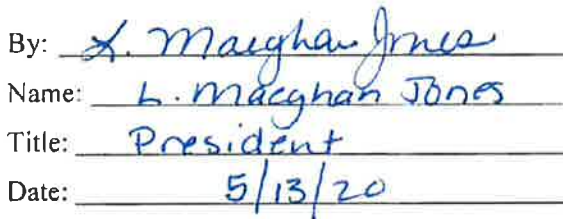 By: L. Maeghan Jones
Name: L. Maeghan Jones
Title: President
Date: 5/13/20